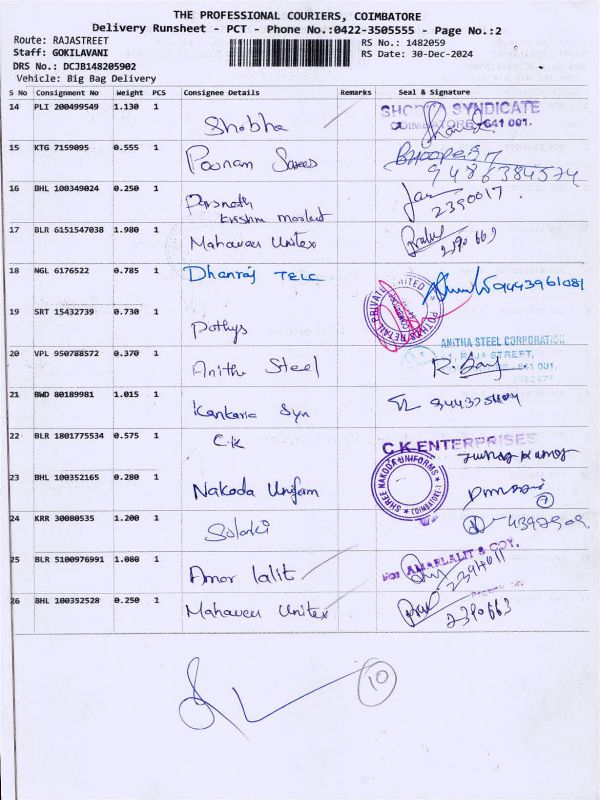 THE PROFESSIONAL COURIERS, COIMBATORE
Delivery Runsheet - PCT - Phone No.:0422-3505555 - Page No.:2
Route: RAJASTREET
RS No.: 1482059
Staff: GOKILAVANI
RS Date: 30-Dec-2024
DRS No.: DCJB148205902
Vehicle: Big Bag Delivery
S No Consignment No Weight PCS Consignee Details Remarks Seal & Signature
14 PLI 200499549 1.130 1 Shobha SYNDICATE
COIMBATORE-641 001.
15 KTG 7159095 0.555 1 Poonam Sarees
9486384574
16 BHL 100349024 0.250 1 Parsnath
krishna market 2390017
17 BLR 6151547038 1.980 1 Mahaveer Unitex 2390663
18 NGL 6176522 0.785 1 Dhanraj TELC 9443961081
19 SRT 15432739 0.730 1 Pothys POTHYS RETAIL PRIVATE LIMITED
ANITHA STEEL CORPORATION
RAJA STREET,
20 VPL 950788572 0.370 1 Anitha Steel
21 BWD 80189981 1.015 1 Kankaria Syn
22 BLR 1801775534 0.575 1 C.K C K ENTERPRISES
23 BHL 100352165 0.280 1 Nakoda Uniform SHREE NAKODA UNIFORMS
24 KRR 30080535 1.200 1 Solanki
25 BLR 5100976991 1.080 1 Amar lalit FOR AMARLALIT & COY.
2394011
26 BHL 100352528 0.250 1 Mahaveer Unitex 2390663
10